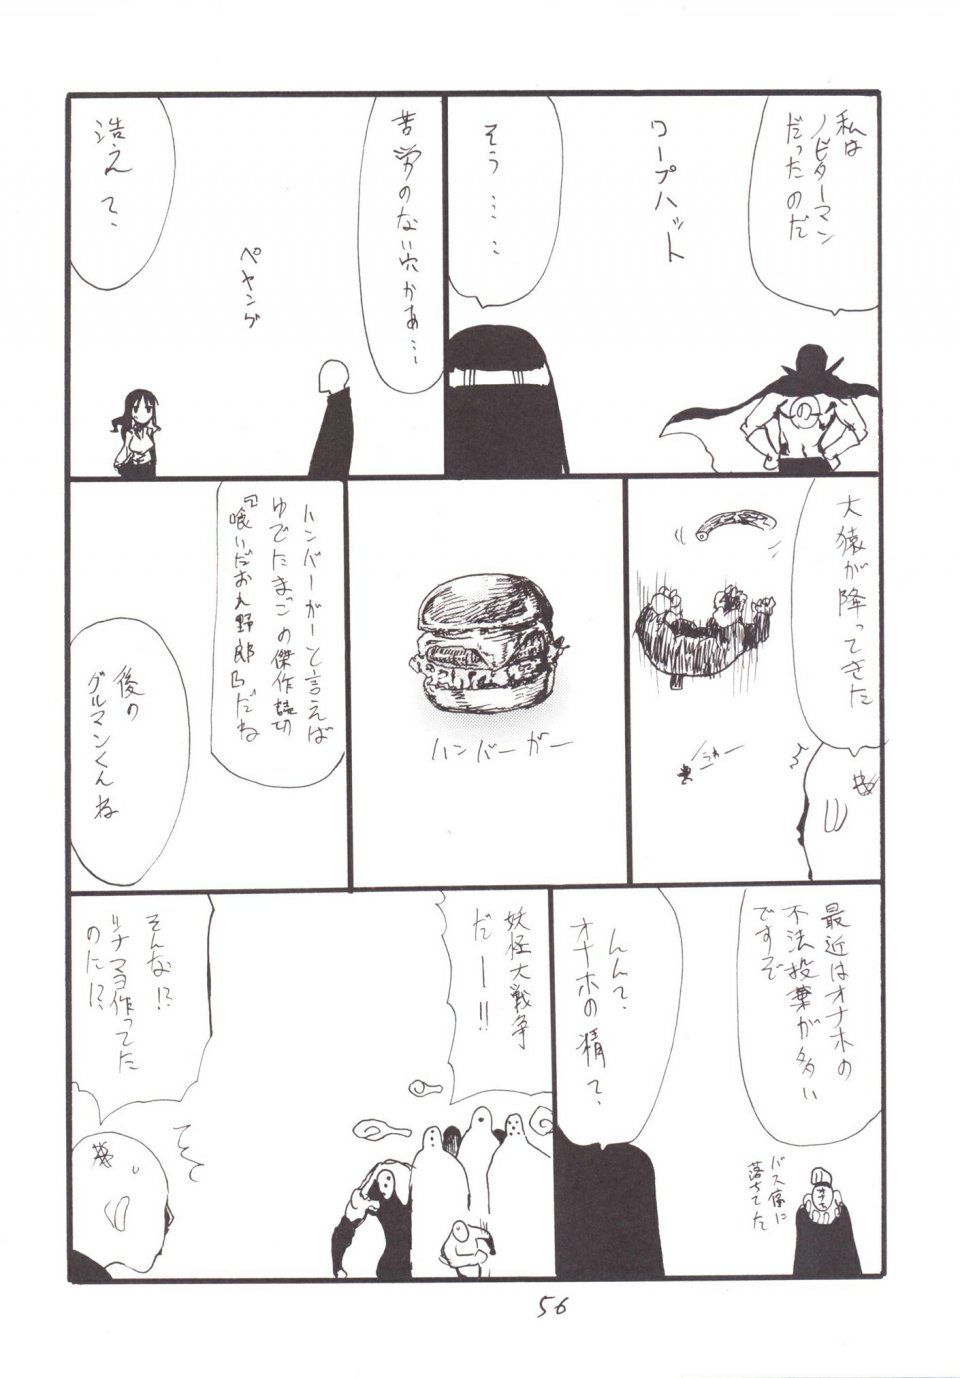 私は
ノビターマン
だったのだ
ワープハット
そう……
苦労のない穴かあ…
ペヤング
浩えて、
大猿が降ってきた
うわー
ハンバーガー
ハンバーガーと言えば
ゆでたまごの傑作読切
『喰いだおれ野郎』だね
後の
グルマンくんね
最近はオナホの
不法投棄が多い
ですぞ
バス停に
落ちてた
んんて、
オナホの精て、
妖怪大戦争
だー!!
そんな!?
リナマヨ作ってた
のに!?
56